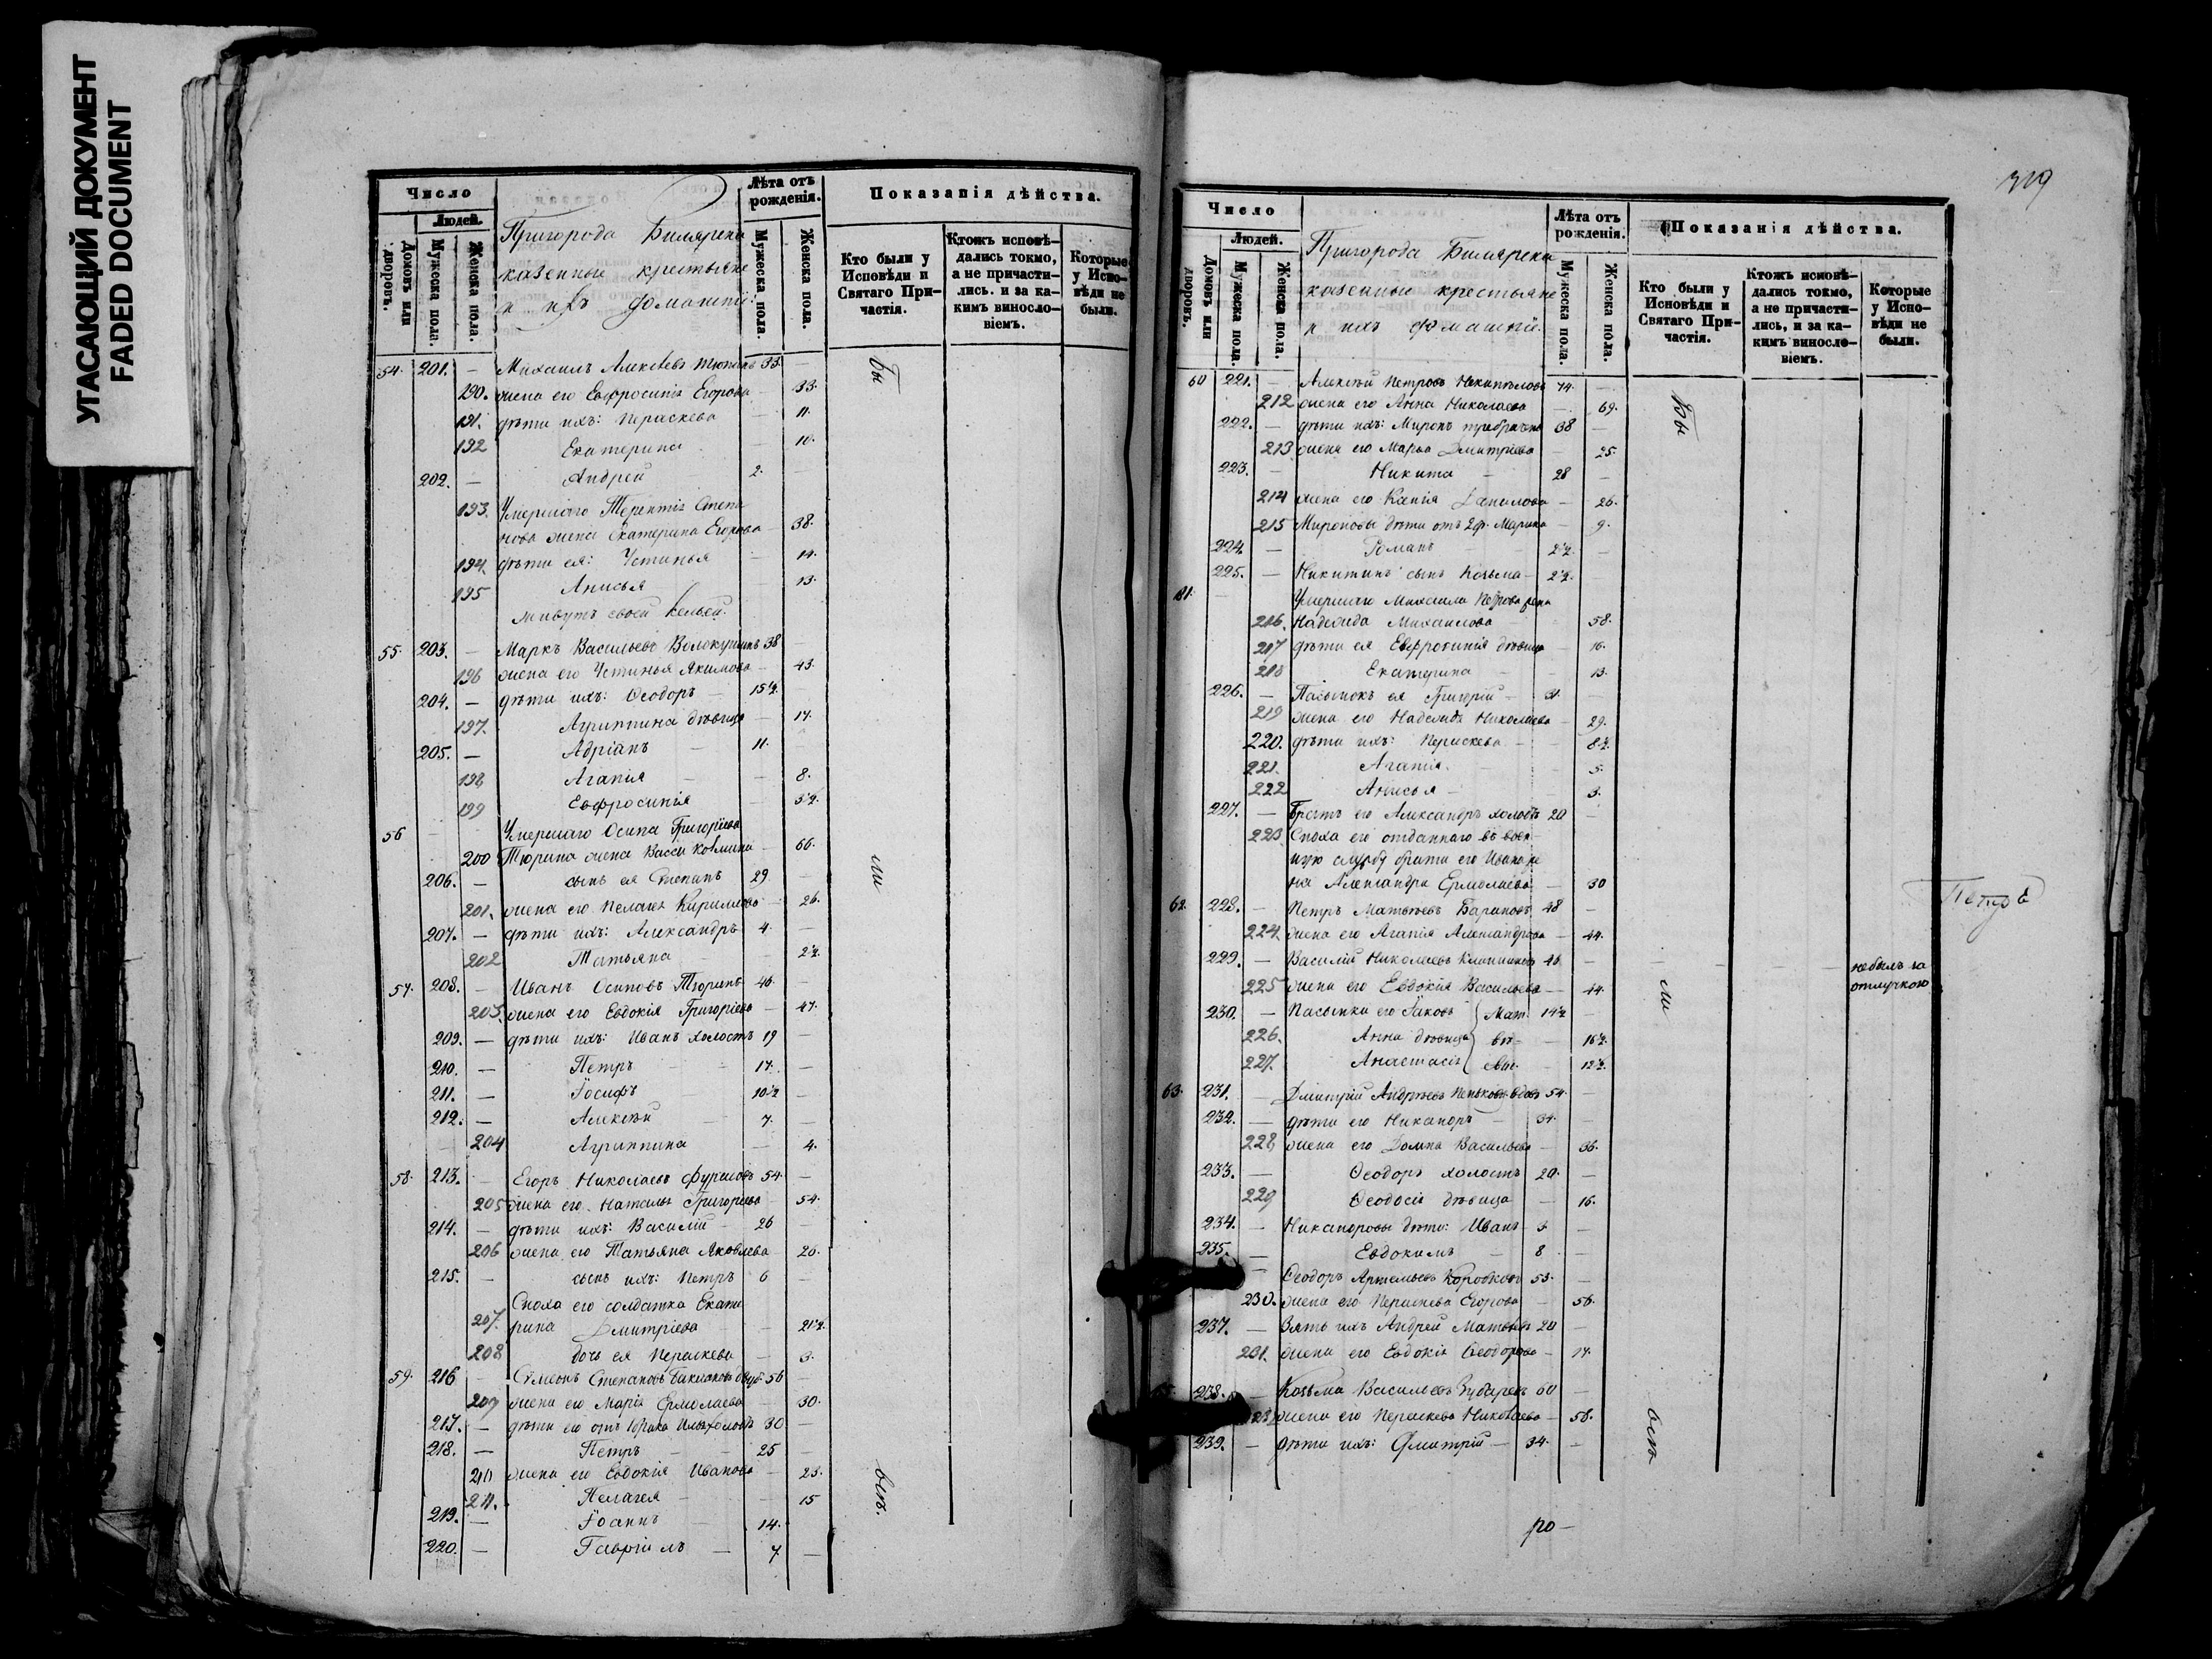 УГАСАЮЩИЙ ДОКУМЕНТ
FADED DOCUMENT
Число
Людей.
Домовъ или дворовъ.
Мужеска пола.
Женска пола.
Пригорода Билярска
казенные крестьяне
и ихъ домашніе:
Лѣта отъ рожденія.
Мужеска пола
Женска пола.
Показанія дѣйства.
Кто были у Исповѣди и Святаго Причастія.
Ктожъ исповѣдались токмо, а не причастились. и за какимъ винословіемъ.
Которые у Исповѣди не были.
54. 201. — Михаилъ Алексѣевъ 33. —
190. жена его Евфросинія Егорова — 33.
191. дѣти ихъ: Параскева — 11.
192 Екатерина — 10.
202. — Андрей 2.
193. Умершаго Терентія Степа
нова жена Екатерина Егорова — 38.
194. дѣти ея: Устинья — 14.
195 Анисья — 13.
живутъ своей кельей.
55. 203. — Маркъ Васильевъ Волокушинъ 38 —
196 жена его Устинья Якимова — 43.
204. — дѣти ихъ: Ѳеодоръ — 15½. —
197. Агриппина дѣвица — 17.
205. — Адріанъ — 11. —
198 Агапія — — 8.
199 Евфросинія — 3½.
56 — Умершаго Осипа Григорьева
200 Тюрина жена Васса Козмина — 66.
206. — сынъ ея Степанъ 29 —
201. жена его Пелагея Кирилова — 26.
207. — дѣти ихъ: Александръ 4. —
202 Татьяна — — 2½.
57. 208. — Иванъ Осиповъ Тюринъ 46. —
203. жена его Евдокія Григорьева — 47.
209. — дѣти ихъ: Иванъ холостъ 19
210. — Петръ — 17. —
211. — Іосифъ 10½ —
212. — Алексѣй — 7. —
204 Агриппина — 4.
58. 213. — Егоръ Николаевъ 54. —
205 жена его Наталья Григорьева — 54.
214. — дѣти ихъ: Василій — 26 —
206 жена его Татьяна Яковлева 26.
215. — сынъ ихъ: Петръ 6 —
Сноха его солдатка Екате
207. рина Дмитріева — — 21½.
208 дочь ея Параскева — 3.
59. 216 — Симеонъ Степановъ 56 —
209 жена его Марія Ермолаева — 30.
217. — дѣти его отъ 1 брака Илья холостъ 30 —
218. — Петръ — — 25 —
210 жена его Евдокія Иванова — 23.
211. Пелагея — — 15
219. — Іоаннъ — 14.
220. — Гавріилъ — 7. —
Бы
ли
всѣ.
319
Число
Людей.
Домовъ или дворовъ.
Мужеска пола
Женска пола.
Пригорода Билярска
казенные крестьяне
и ихъ домашніе.
Лѣта отъ рожденія.
Мужеска пола.
Женска пола.
Показанія дѣйства.
Кто были у Исповѣди и Святаго Причастія.
Ктожъ исповѣдались токмо, а не причастились, и за какимъ винословіемъ.
Которые у Исповѣди не были.
60 221. — Алексѣй Петровъ 74. —
212 жена его Анна Николаева — 69.
222. — дѣти ихъ: Миронъ 38 —
213 жена его Марья Дмитріева — 25.
223. — Никита — 28 —
214 жена его Ксенія Данилова — 26.
215 Мироновы дѣти отъ 2 бр. Марина — 9.
224. — Романъ — — 2½. —
225. — Никитинъ сынъ Козьма — 2½. —
61. — Умершаго Михаила Петрова жена
216. Надежда Михаилова — 58.
217 дѣти ея Евфросинія дѣвица — 16.
218 Екатерина — 13.
226. — Пасынокъ ея Григорій — 31. —
219 жена его Надежда Николаева — 29.
220. дѣти ихъ: Параскева — — 8½.
221. Агапія. — — 5.
222 Анисья — 3.
227. — Братъ его Александръ холостъ 20 —
223 Сноха его отданнаго въ воен-
ную службу брата его Ивана же
на Александра Ермолаева — 30
62. 228. — Петръ Матвѣевъ Бариновъ 48 —
Петръ
224. жена его Агапія Александрова — 44.
229. — Василій Николаевъ 46. — — — — небылъ за
отлучкою
225 жена его Евдокія Васильева — 44.
230. — Пасынки его Іаковъ Мат 14½ —
226. Анна дѣвица вѣ — 16½.
227. Анастасія евы. — 12½.
63. 231. — Дмитрій Андреевъ вдовъ 54. —
232. — дѣти его Никаноръ — 34. —
228 жена его Домна Васильева — 36.
233. — Ѳеодоръ холостъ 20. —
229 Ѳеодосія дѣвица — 16.
234. — Никаноровы дѣти: Иванъ 3. —
235. — Евдокимъ — 8 —
— Ѳеодоръ Артемьевъ 53. —
230. жена его Параскева Егорова — 56.
237. — Зять ихъ Андрей Матвѣевъ 20 —
231. жена его Евдокія Ѳеодорова — 17.
238. — Козьма Васильевъ Зубаревъ 60 —
жена его Параскева Николаева — 58.
239. — дѣти ихъ: Дмитрій — 34. —
Бы
ли
всѣ
ро—